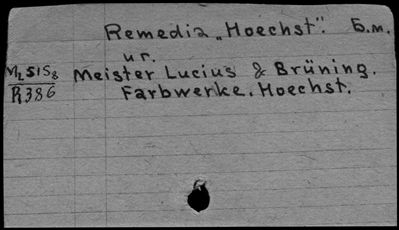 Remedia „Hoechst". Б.м.
иг.
M₂515₈ Meister Lucius & Brüning.
R386 Farbwerke. Hoechst.